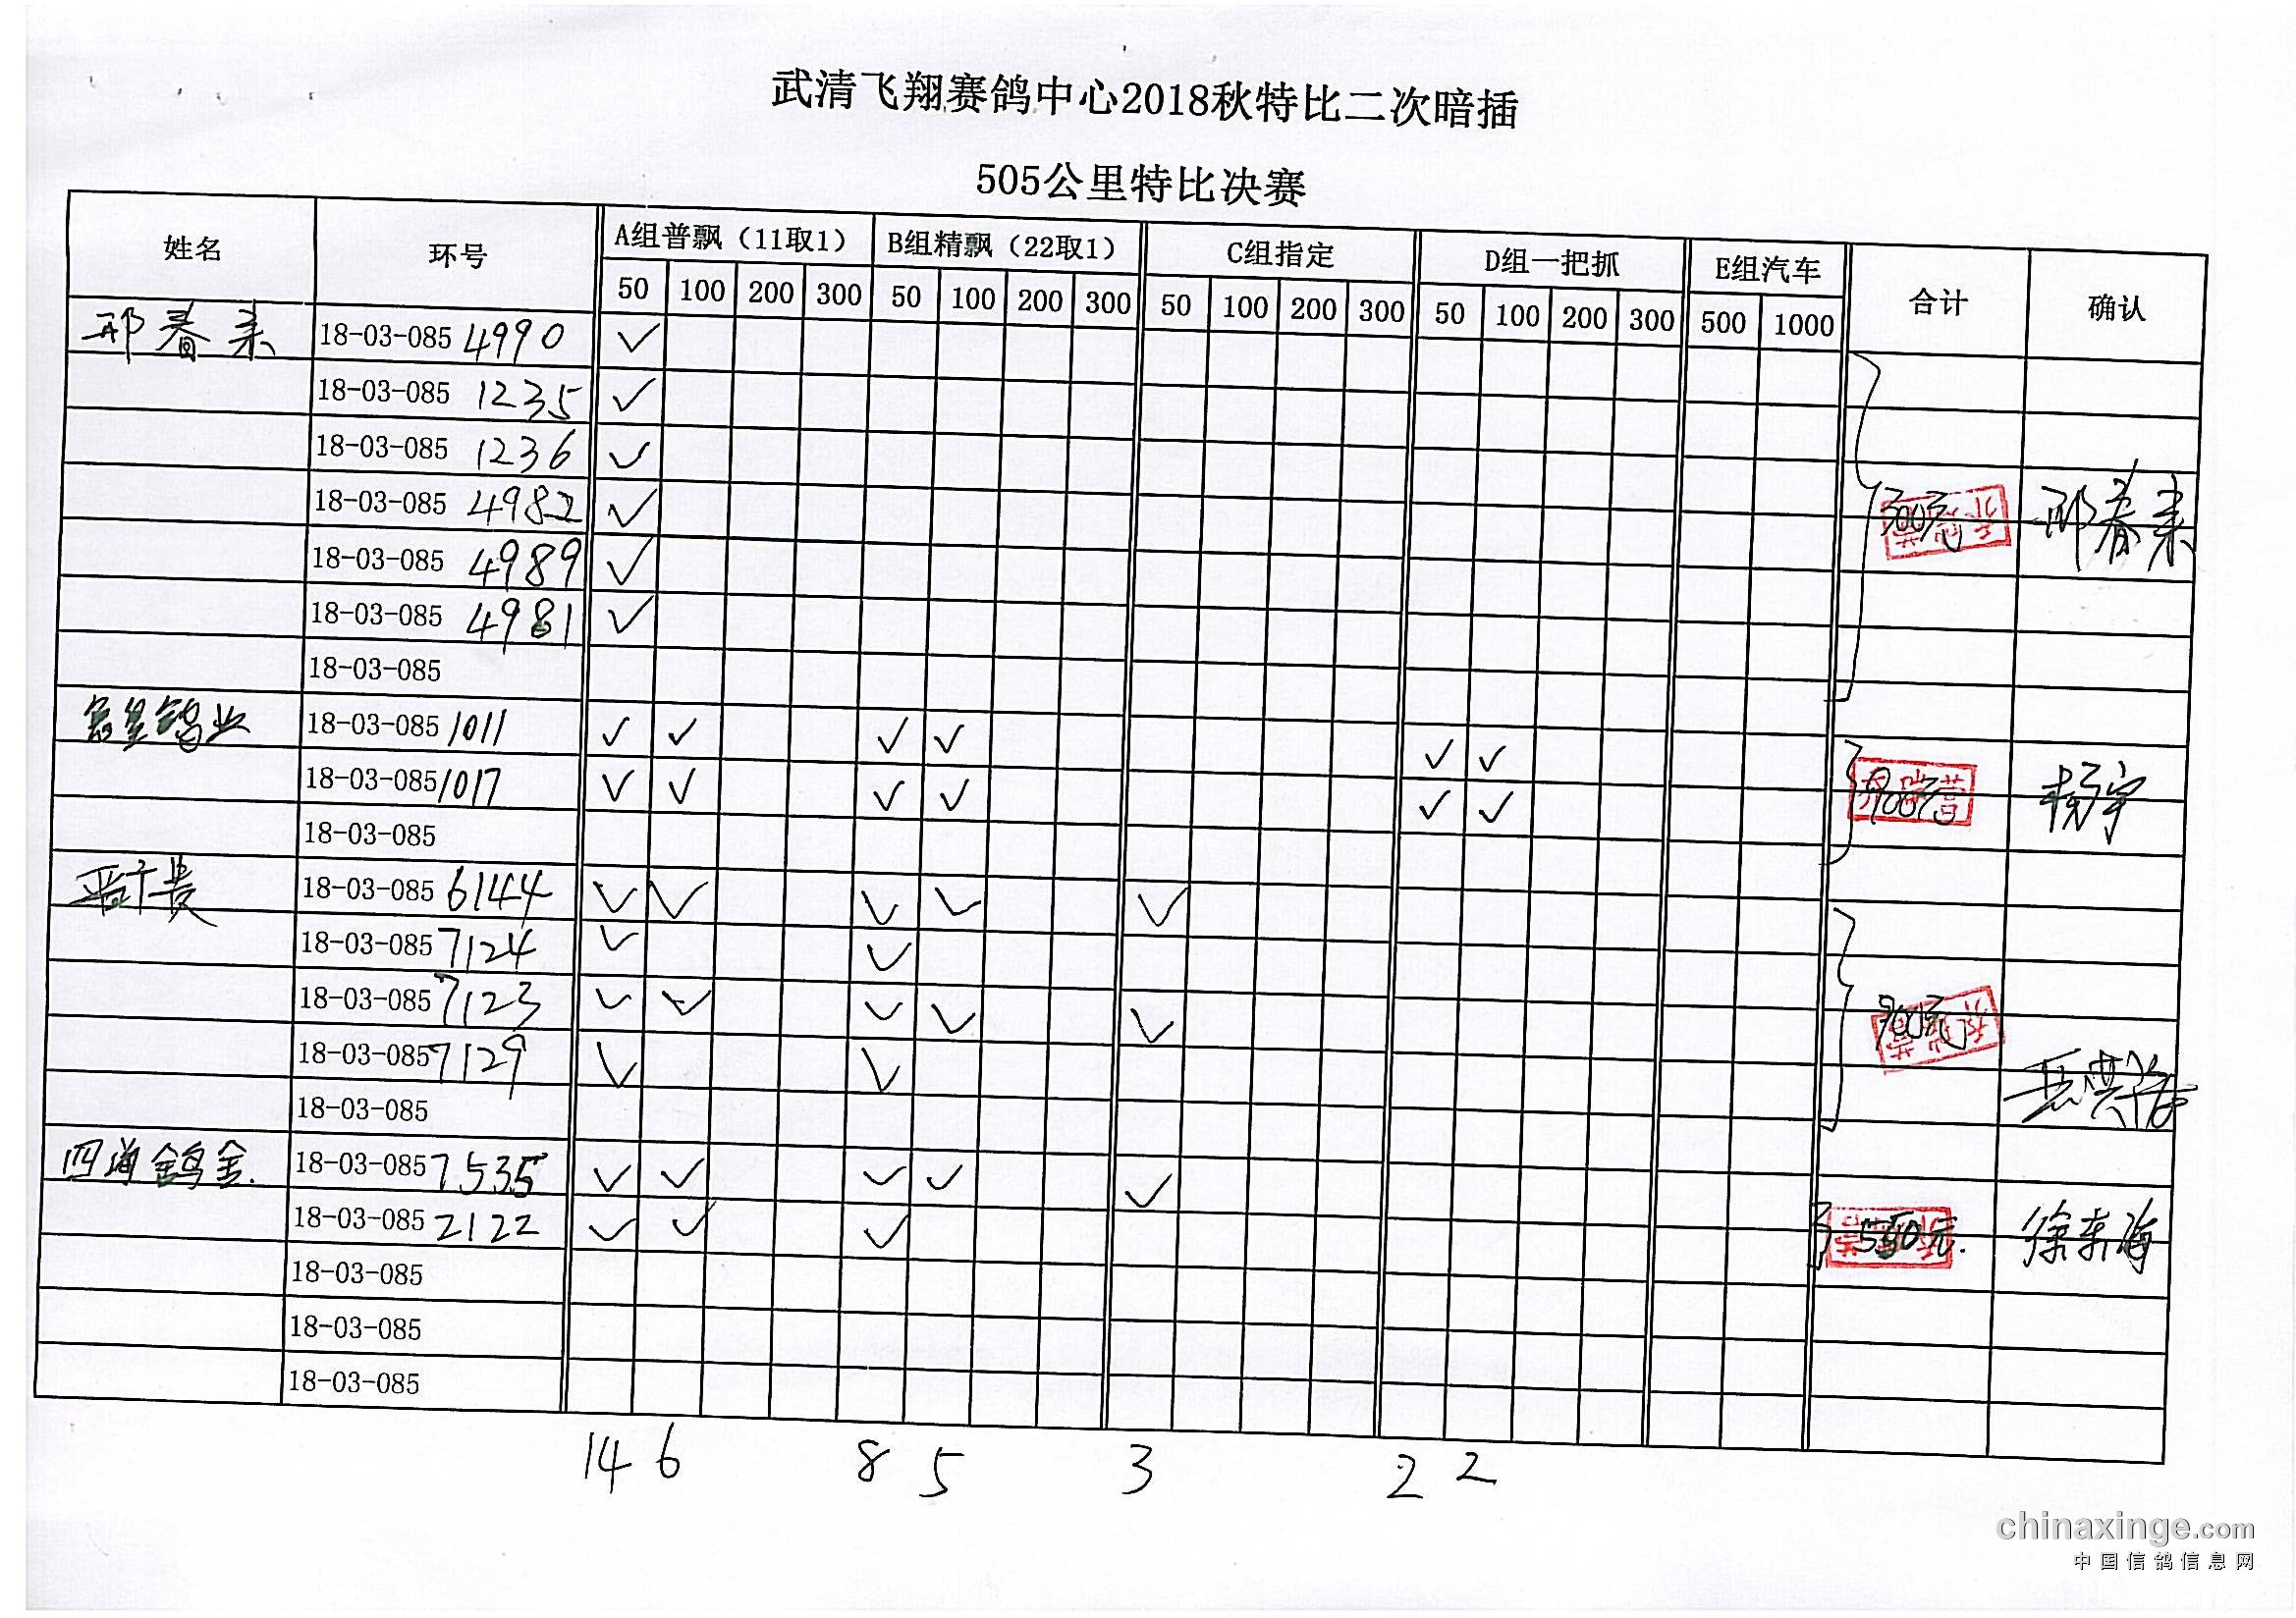 武清飞翔赛鸽中心2018秋特比二次暗插
505公里特比决赛
姓名 环号 A组普飘（11取1） B组精飘（22取1） C组指定 D组一把抓 E组汽车 合计 确认
50 100 200 300 50 100 200 300 50 100 200 300 50 100 200 300 500 1000
邢春来 18-03-085 4990 ✓
18-03-085 1235 ✓
18-03-085 1236 ✓
18-03-085 4982 ✓ 300元 邢春来
18-03-085 4989 ✓
18-03-085 4981 ✓
18-03-085
鸽业 18-03-085 1011 ✓ ✓ ✓ ✓ ✓ ✓
18-03-085 1017 ✓ ✓ ✓ ✓ ✓ ✓ 900元 杨宇
18-03-085
18-03-085 6144 ✓ ✓ ✓ ✓ ✓
18-03-085 7124 ✓ ✓
18-03-085 7123 ✓ ✓ ✓ ✓ ✓ 900元
18-03-085 7129 ✓ ✓
18-03-085
四海鸽舍. 18-03-085 7535 ✓ ✓ ✓ ✓ ✓
18-03-085 2122 ✓ ✓ ✓ 550元. 徐东海
18-03-085
18-03-085
18-03-085
14 6 8 5 3 2 2
chinaxinge.com
中国信鸽信息网